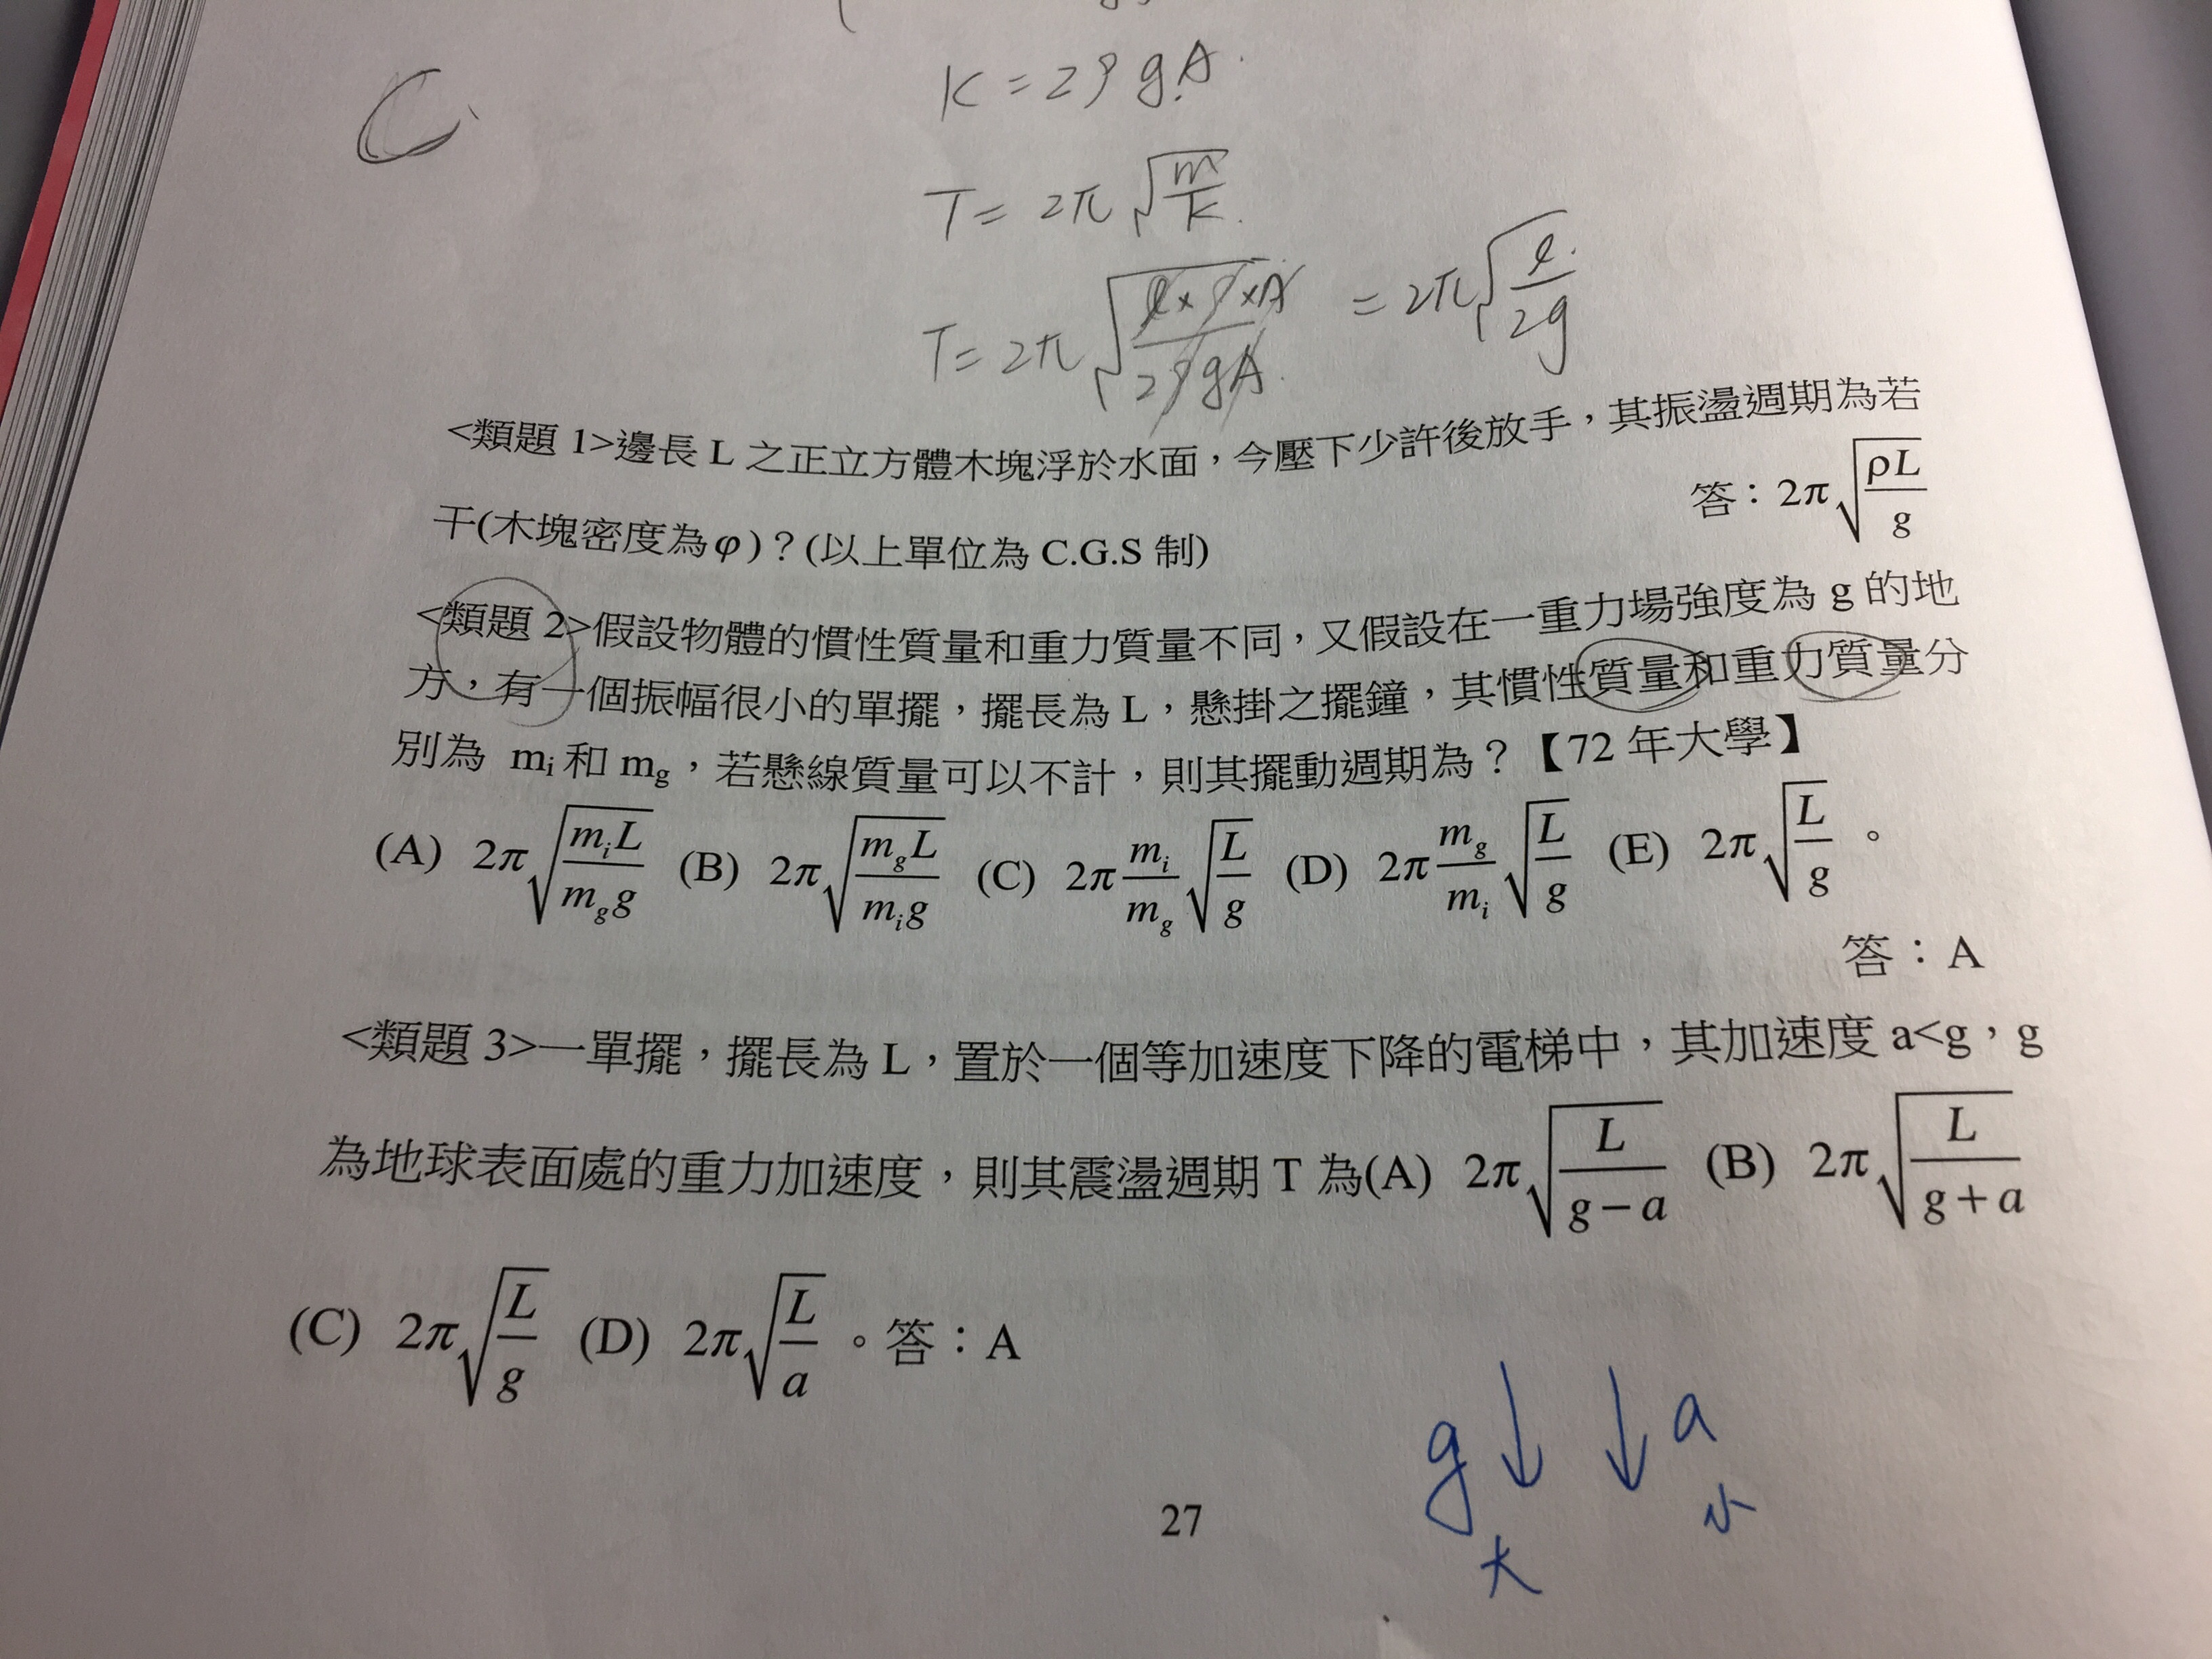 C
K = 2ρgA.
T = 2π√(m/K).
T = 2π√(ℓ×ρ×A / 2ρgA) = 2π√(ℓ/2g)
<類題 1>邊長 L 之正立方體木塊浮於水面，今壓下少許後放手，其振盪週期為若
干(木塊密度為φ)？(以上單位為 C.G.S 制) 答：2π√(ρL/g)
<類題 2>假設物體的慣性質量和重力質量不同，又假設在一重力場強度為 g 的地
方，有一個振幅很小的單擺，擺長為 L，懸掛之擺鐘，其慣性質量和重力質量分
別為 mi 和 mg，若懸線質量可以不計，則其擺動週期為？【72 年大學】
(A) 2π√(miL/mgg) (B) 2π√(mgL/mig) (C) 2π mi/mg √(L/g) (D) 2π mg/mi √(L/g) (E) 2π√(L/g)。
答：A
<類題 3>一單擺，擺長為 L，置於一個等加速度下降的電梯中，其加速度 a<g，g
為地球表面處的重力加速度，則其震盪週期 T 為(A) 2π√(L/(g−a)) (B) 2π√(L/(g+a))
(C) 2π√(L/g) (D) 2π√(L/a)。答：A
g↓ ↓a
大 小
27